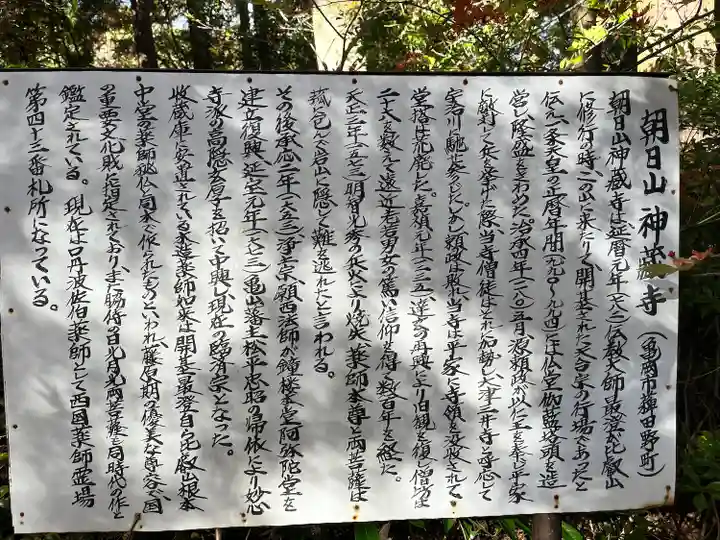 朝日山 神蔵寺 (亀岡市稗田野町)
朝日山神蔵寺は延暦元年(七八二)伝教大師最澄が比叡山
に修行の時、この山に来たりて開基された天台宗の行場であったと
伝え、一条天皇の正暦年間(九九〇〜九九四)には仏堂伽藍塔頭を造
営し隆盛をきわめた。治承四年(一一八〇)五月、源頼政が以仁王を奉じ平家
に敵対して兵を挙げた際、当寺僧徒はこれに加勢し大津三井寺と呼応して
宇治川に馳せ参じた。しかし頼政は敗れ、当寺は平家に寺領を没収されて、
堂塔は荒廃した。嘉禎元年(一二三五)達玄の再興により旧観を復し僧坊は
二十六を数えて遠近老若男女の篤い信仰を得、数百年を経た。
天正三年(一五七五)明智光秀の兵火により焼失、薬師本尊と両菩薩は
菰に包んで岩山に隠して難を逃れたと言われる。
その後承応二年(一六五三)浄土宗願西法師が鐘楼、本堂、阿弥陀堂を
建立復興、延宝元年(一六七三)亀山藩主松平忠昭の帰依により妙心
寺派の高隠玄厚を招いて中興し、現在の臨済宗となった。
収蔵庫に安置されている木造薬師如来は開基最澄自ら比叡山根本
中堂の薬師秘仏と同木で作られたものといわれ、藤原期の優美な尊容で国
の重要文化財に指定されており、また脇侍の日光月光両菩薩も同時代の作と
鑑定されている。現在は口丹波佐伯薬師として西国薬師霊場
第四十三番札所になっている。